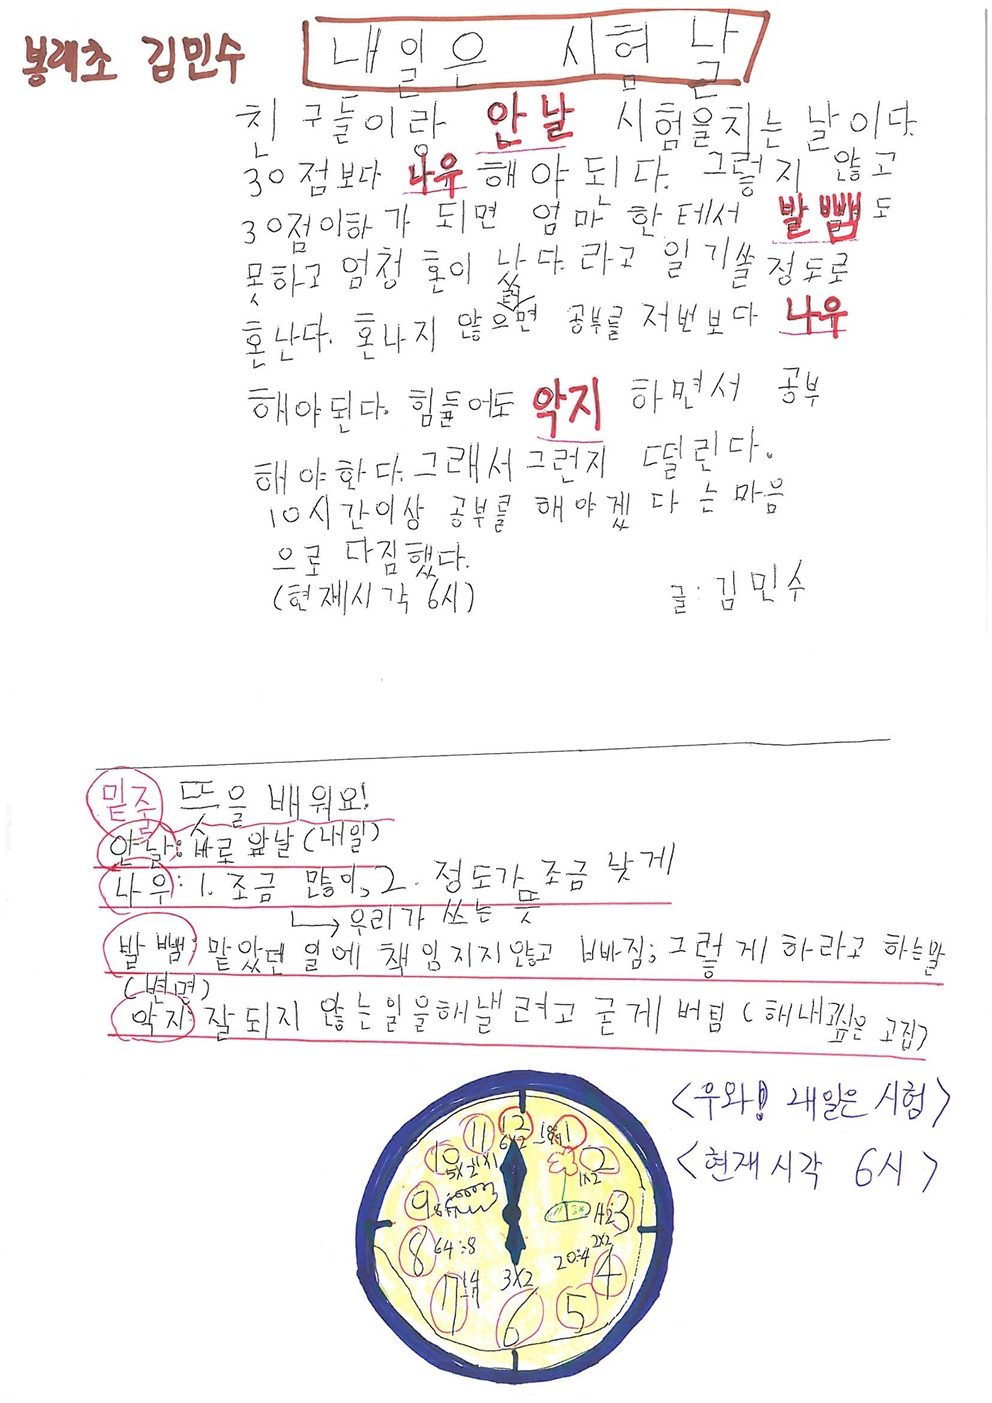 봉래초 김민수
내일은 시험 날
친구들이랑 안날 시험을치는 날이다.
30점보다 나우 해야 되다. 그렇지 않고
30점이하가 되면 엄마 한테서 발뺌도
못하고 엄청 혼이 났다. 라고 일기쓸 정도로
혼난다. 혼나지 않으면 공부를 저번보다 나우
해야된다. 힘들어도 악지 하면서 공부
해야한다. 그래서 그런지 떨린다.
10시간이상 공부를 해야겠다는 마음
으로 다짐했다.
(현재시각 6시) 글: 김민수
밑줄 뜻을 배워요!
안날: 바로 앞날 (내일)
나우: 1. 조금 많이, 2. 정도가 조금 낮게
우리가 쓰는 뜻
발뺌: 맡았던 일에 책임지지않고 빠짐; 그렇게 하라고 하는말
(변명)
악지: 잘되지 않는일을해낼려고 굳게 버팀 (해내고싶은 고집)
<우와! 내일은 시험>
<현재 시각 6시>
12
6X2
1
11
11X1
2
1X2
10
5X2
3
9
4
2X2
20÷4
8
64÷8
7
5
6
3X2